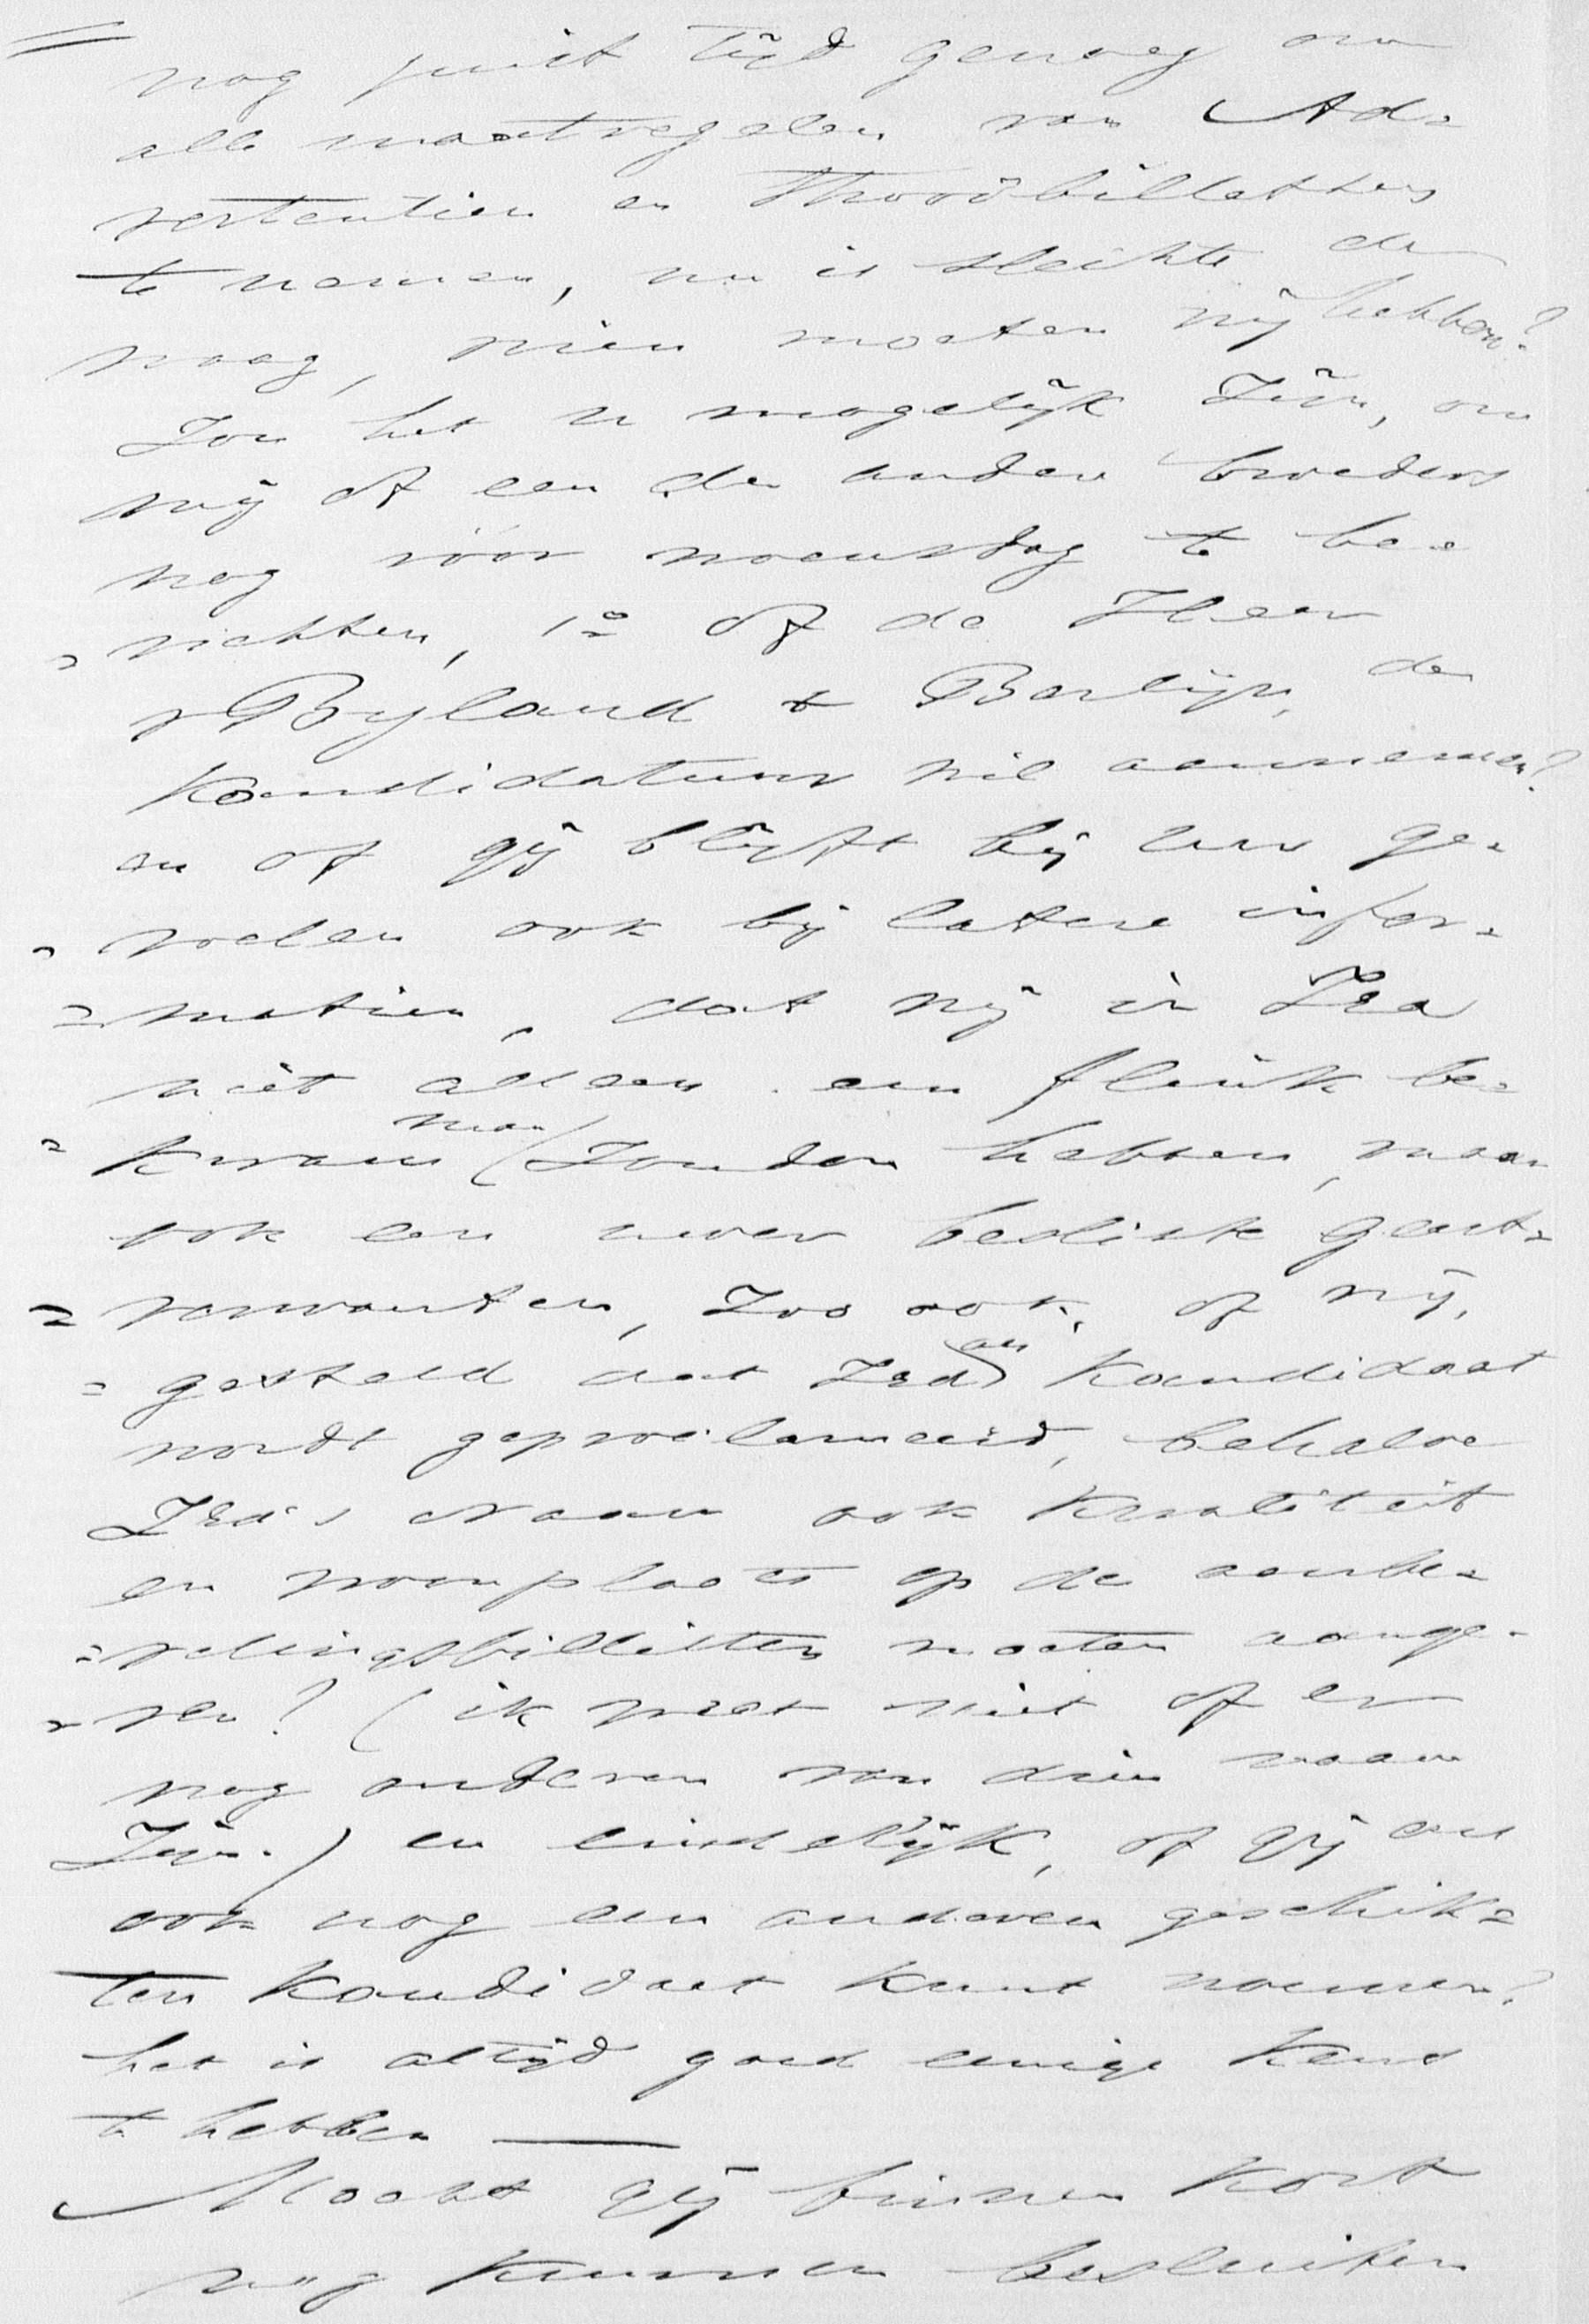 nog juist tijd genoeg om
alle maatregelen van Ad=
vertentien en Strooibilletten
te nemen, nu is slechts de
vraag, wien moeten wij hebben?
Zou het u mogelijk zijn, om
mij of een der andere broeders
nog vóór woensdag te be=
=richten, 1o of de Heer
v Byland te Barlijn, de
Kandidatuur wil aannemen?
en of gij blijft bij uw ge=
=voelen ook bij latere infor=
=matien, dat wij in
niet alleen een flink be=
=kwaam man zouden hebben, maar
ook een uwer besliste geest=
=verwanten, zoo ook, of wij,
=gesteld dat als Kandidaat
wordt geproclameerd, behalve
Naam ook kwaliteit
en woonplaats op de aanbe=
=velingsbilletten moeten aange=
=ven? (ik weet niet of er
nog anderen van dien naam
zijn.) en eindelijk, of gij ons
ook nog een anderen geschik=
ten Kandidaat kunt noemen?
het is altijd goed eenige keus
te hebben —
Mocht gij binnen kort
nog kunnen besluiten